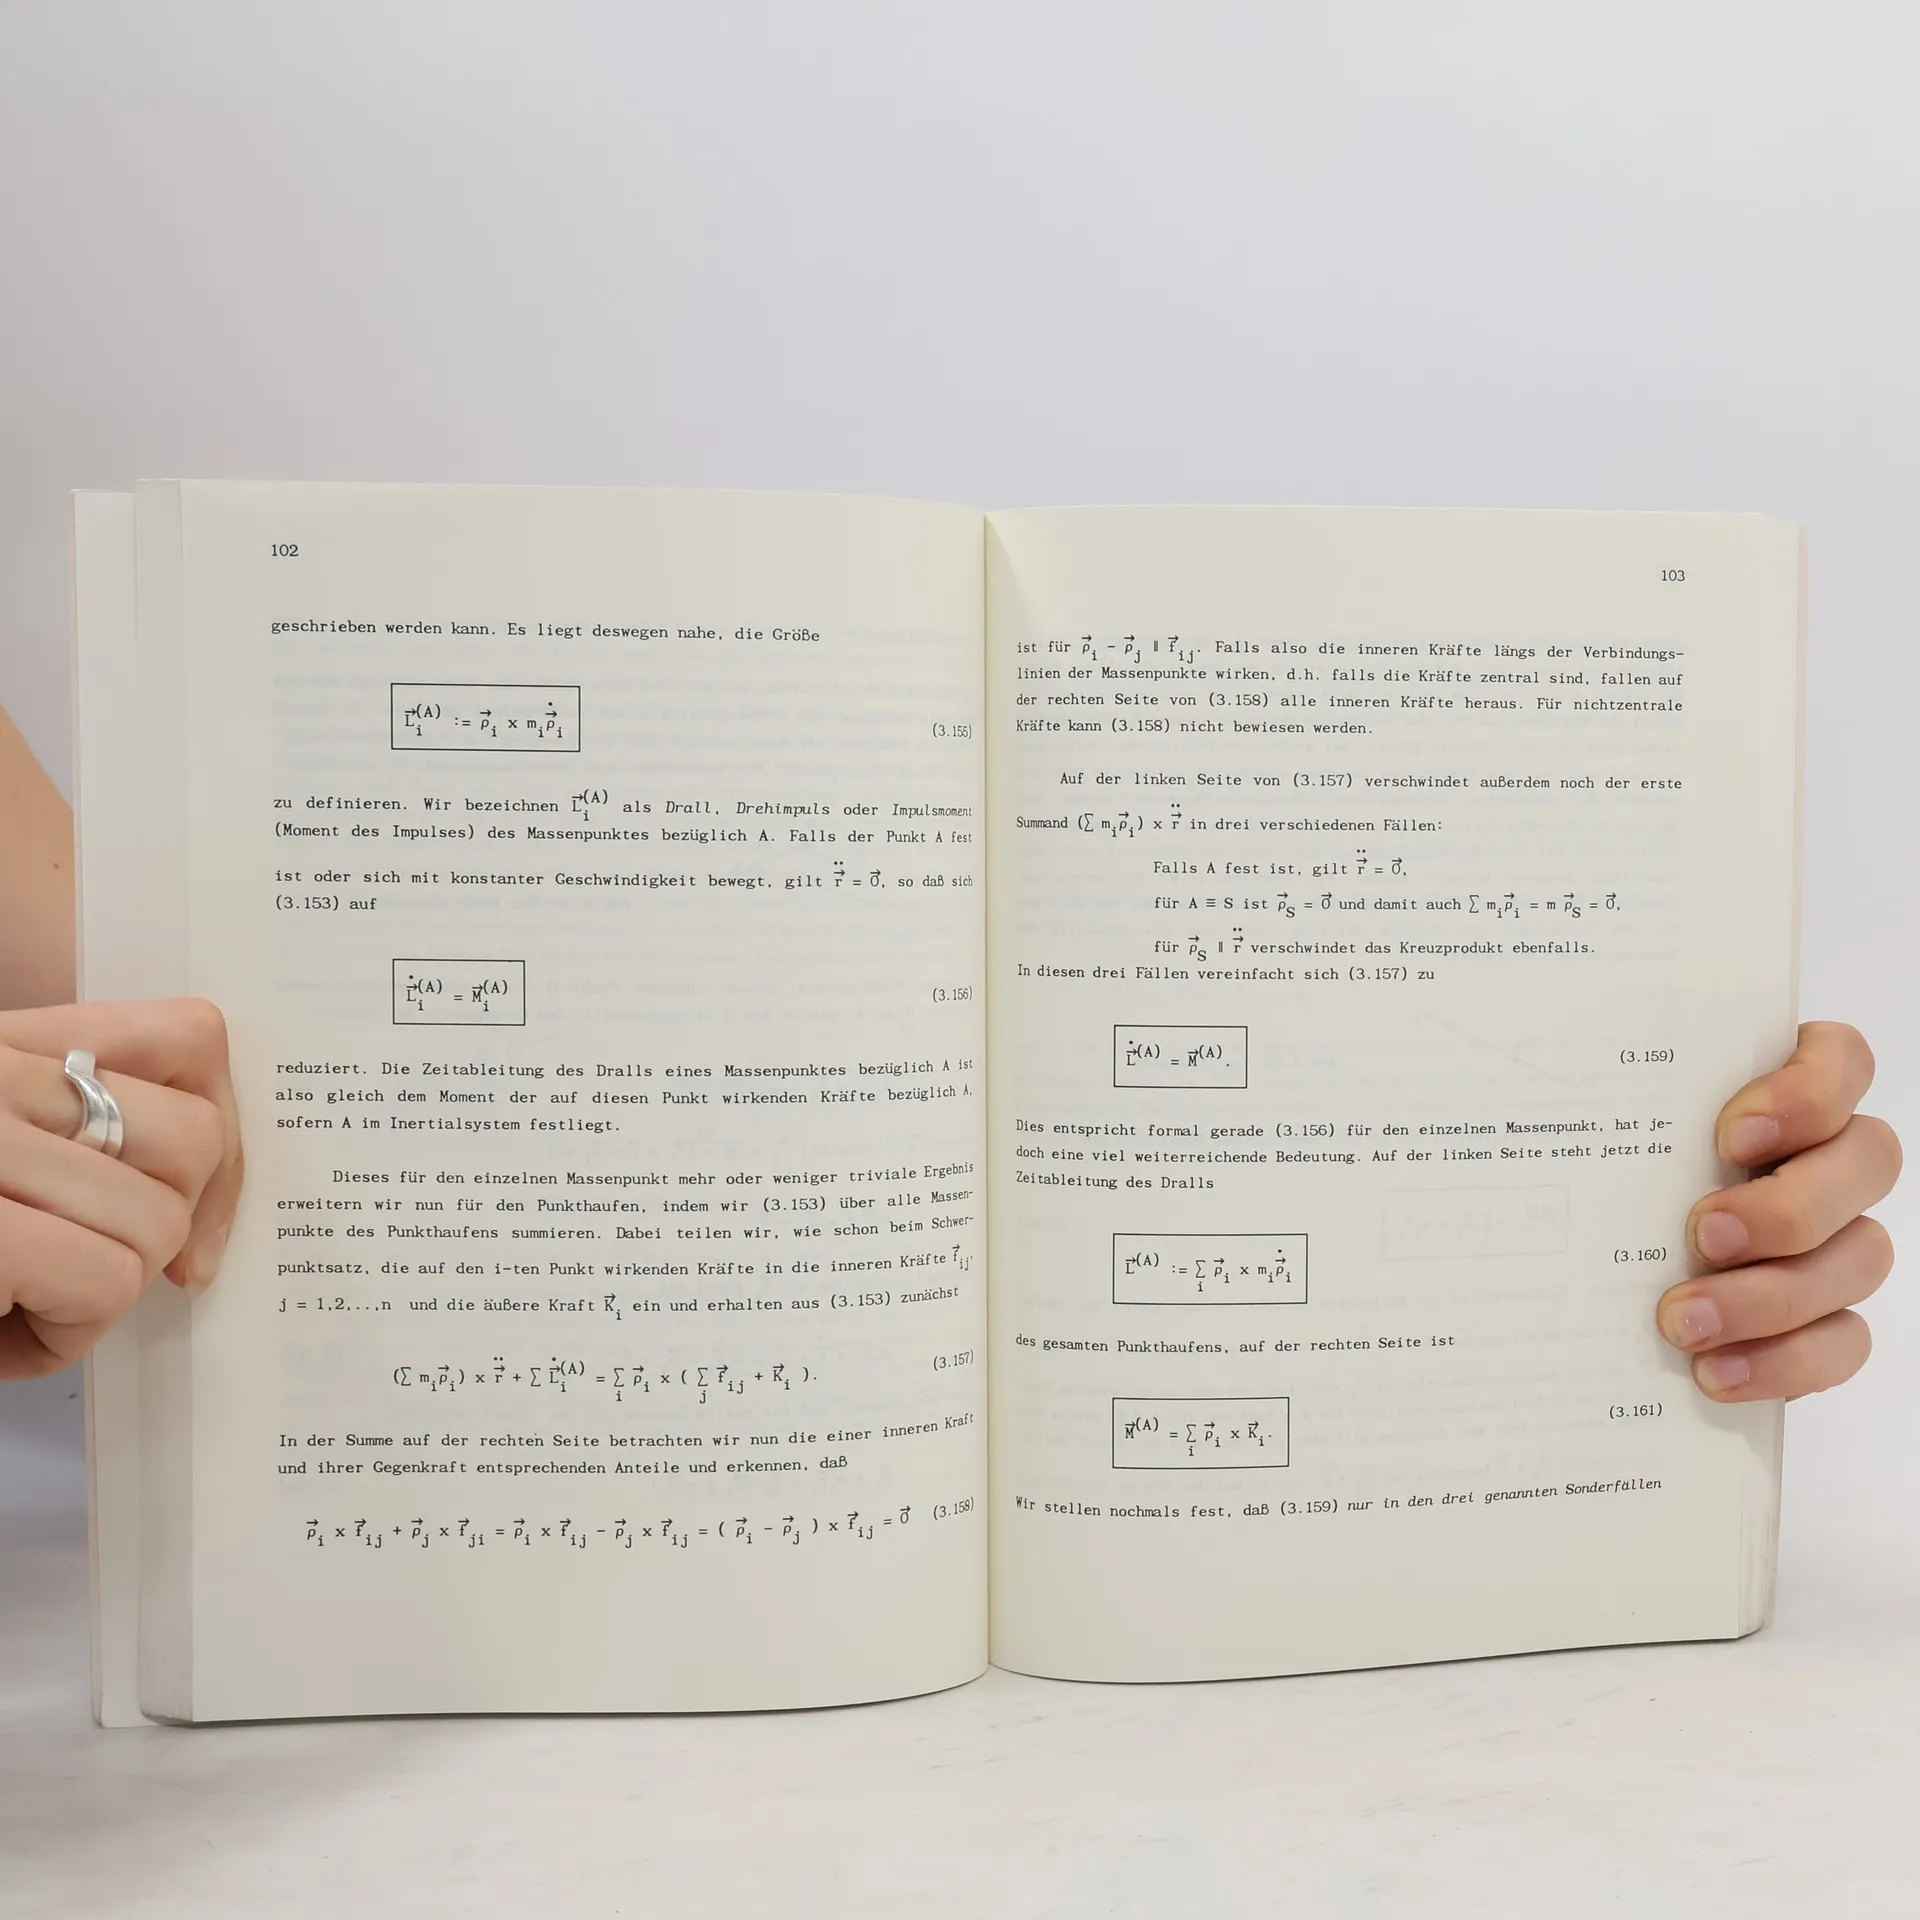 102
geschrieben werden kann. Es liegt deswegen nahe, die Größe
L⃗ᵢ⁽ᴬ⁾ := ρ⃗ᵢ x mᵢρ⃗̇ᵢ (3.155)
zu definieren. Wir bezeichnen L⃗ᵢ⁽ᴬ⁾ als Drall, Drehimpuls oder Impulsmoment
(Moment des Impulses) des Massenpunktes bezüglich A. Falls der Punkt A fest
ist oder sich mit konstanter Geschwindigkeit bewegt, gilt r⃗̈ = 0⃗, so daß sich
(3.153) auf
L⃗̇ᵢ⁽ᴬ⁾ = M⃗ᵢ⁽ᴬ⁾ (3.156)
reduziert. Die Zeitableitung des Dralls eines Massenpunktes bezüglich A ist
also gleich dem Moment der auf diesen Punkt wirkenden Kräfte bezüglich A,
sofern A im Inertialsystem festliegt.
Dieses für den einzelnen Massenpunkt mehr oder weniger triviale Ergebnis
erweitern wir nun für den Punkthaufen, indem wir (3.153) über alle Massen-
punkte des Punkthaufens summieren. Dabei teilen wir, wie schon beim Schwer-
punktsatz, die auf den i-ten Punkt wirkenden Kräfte in die inneren Kräfte f⃗ᵢⱼ,
j = 1,2,..,n und die äußere Kraft K⃗ᵢ ein und erhalten aus (3.153) zunächst
(∑ mᵢρ⃗ᵢ) x r⃗̈ + ∑ L⃗̇ᵢ⁽ᴬ⁾ = ∑ᵢ ρ⃗ᵢ x ( ∑ⱼ f⃗ᵢⱼ + K⃗ᵢ ). (3.157)
In der Summe auf der rechten Seite betrachten wir nun die einer inneren Kraft
und ihrer Gegenkraft entsprechenden Anteile und erkennen, daß
ρ⃗ᵢ x f⃗ᵢⱼ + ρ⃗ⱼ x f⃗ⱼᵢ = ρ⃗ᵢ x f⃗ᵢⱼ - ρ⃗ⱼ x f⃗ᵢⱼ = ( ρ⃗ᵢ - ρ⃗ⱼ ) x f⃗ᵢⱼ = 0⃗ (3.158)
103
ist für ρ⃗ᵢ - ρ⃗ⱼ ∥ f⃗ᵢⱼ. Falls also die inneren Kräfte längs der Verbindungs-
linien der Massenpunkte wirken, d.h. falls die Kräfte zentral sind, fallen auf
der rechten Seite von (3.158) alle inneren Kräfte heraus. Für nichtzentrale
Kräfte kann (3.158) nicht bewiesen werden.
Auf der linken Seite von (3.157) verschwindet außerdem noch der erste
Summand (∑ mᵢρ⃗ᵢ) x r⃗̈ in drei verschiedenen Fällen:
Falls A fest ist, gilt r⃗̈ = 0⃗,
für A ≡ S ist ρ⃗_S = 0⃗ und damit auch ∑ mᵢρ⃗ᵢ = m ρ⃗_S = 0⃗,
für ρ⃗_S ∥ r⃗̈ verschwindet das Kreuzprodukt ebenfalls.
In diesen drei Fällen vereinfacht sich (3.157) zu
L⃗̇⁽ᴬ⁾ = M⃗⁽ᴬ⁾. (3.159)
Dies entspricht formal gerade (3.156) für den einzelnen Massenpunkt, hat je-
doch eine viel weiterreichende Bedeutung. Auf der linken Seite steht jetzt die
Zeitableitung des Dralls
L⃗⁽ᴬ⁾ := ∑ᵢ ρ⃗ᵢ x mᵢρ⃗̇ᵢ (3.160)
des gesamten Punkthaufens, auf der rechten Seite ist
M⃗⁽ᴬ⁾ = ∑ᵢ ρ⃗ᵢ x K⃗ᵢ. (3.161)
Wir stellen nochmals fest, daß (3.159) nur in den drei genannten Sonderfällen